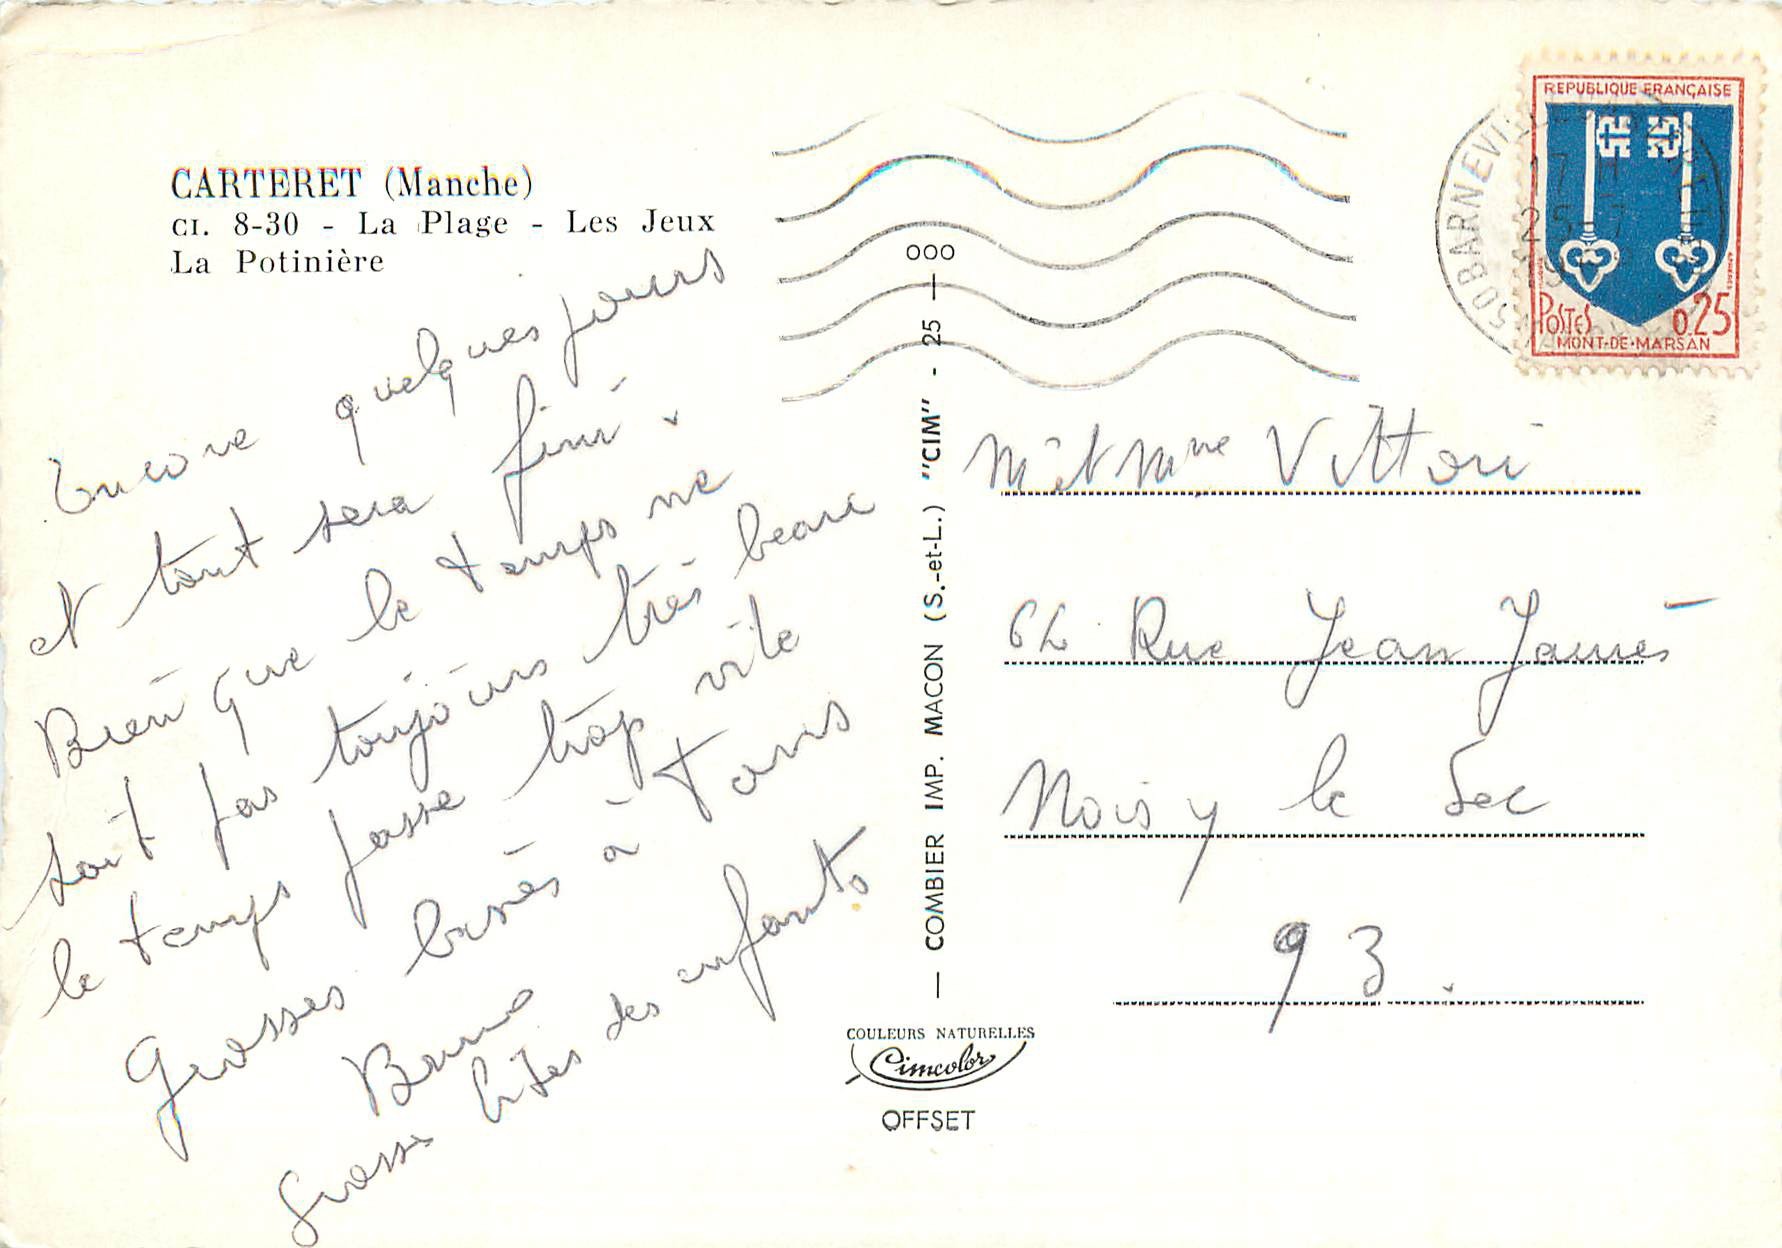 CARTERET (Manche)
CI. 8-30 - La Plage - Les Jeux
La Potinière
Encore quelques jours
et tout sera fini.
Bien que le temps ne
soit pas toujours très beau
le temps passe trop vite
Grosses bises à Tous
Bruno
Grosses bises des enfants
— COMBIER IMP. MACON (S.-et-L.) "CIM" - 25 — 000
COULEURS NATURELLES
Cimcolor
OFFSET
REPUBLIQUE FRANÇAISE
POSTES
0,25
MONT-DE-MARSAN
50 BARNEVILLE
17 H
25-7
19
M et Mme Vittori
62 Rue Jean Jaurès
Noisy le Sec
93.